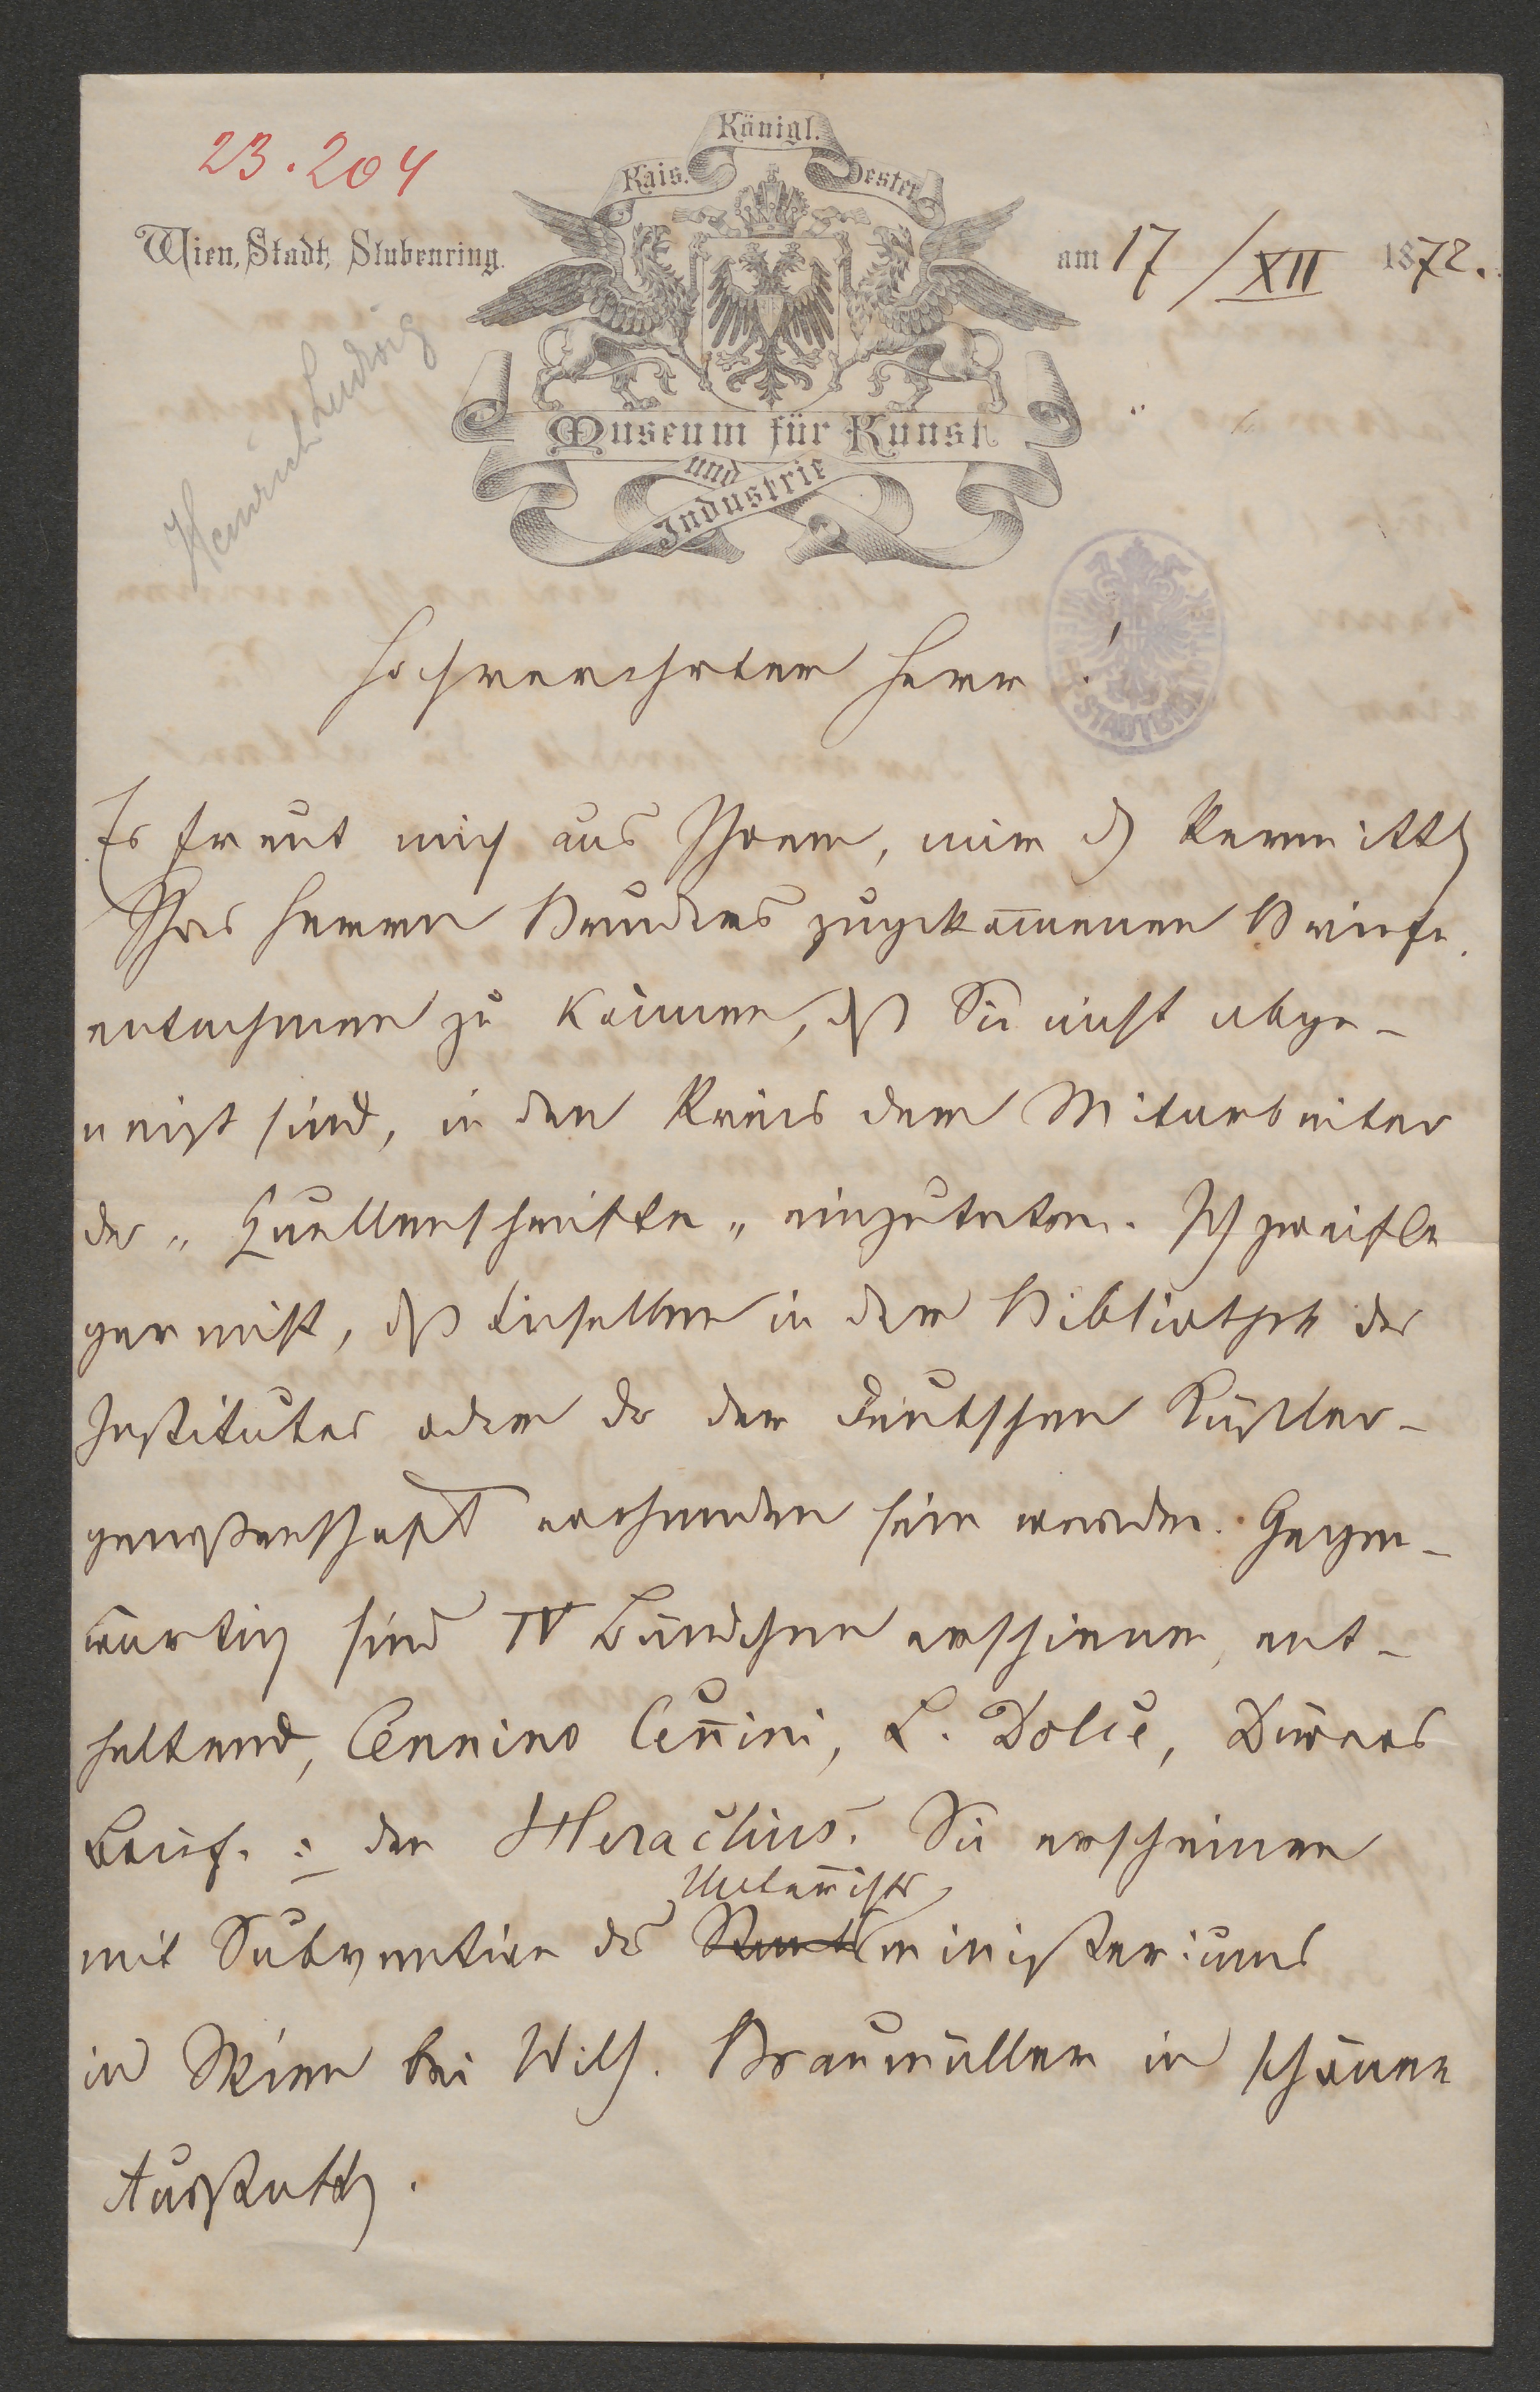 23.204
Königl.
Kais. Oester.
Wien, Stadt, Stubenring.
am 17/XII 1872.
Museum für Kunst
und
Industrie
Heinrich Ludwig
STADTBIB
Hochverehrter Herr!
Es freut mich aus Ihrem, mir d Vermittlg
Ihres Herrn Bruders zugekom̅enen Briefe
entnehmen zu können, dß Sie nicht abge-
neigt sind, in den Kreis der Mitarbeiter
der „Quellenschriften„ einzutreten. Ich zweifle
gar nicht, dß dieselben in der Bibliothek des
Institutes oder der deutschen Künstler-
genoßenschaft vorhanden sein werden. Gegen-
wärtig sind IV Bändchen erschienen, ent-
haltend, Cennino Cen̅ini, L. Dolce, Dürers
Briefe den Heraclius. Sie erscheinen
Unterrichts
mit Subvention des ministeriums
in Wien bei Wilh. Braumüller in schöner
Ausstattg.